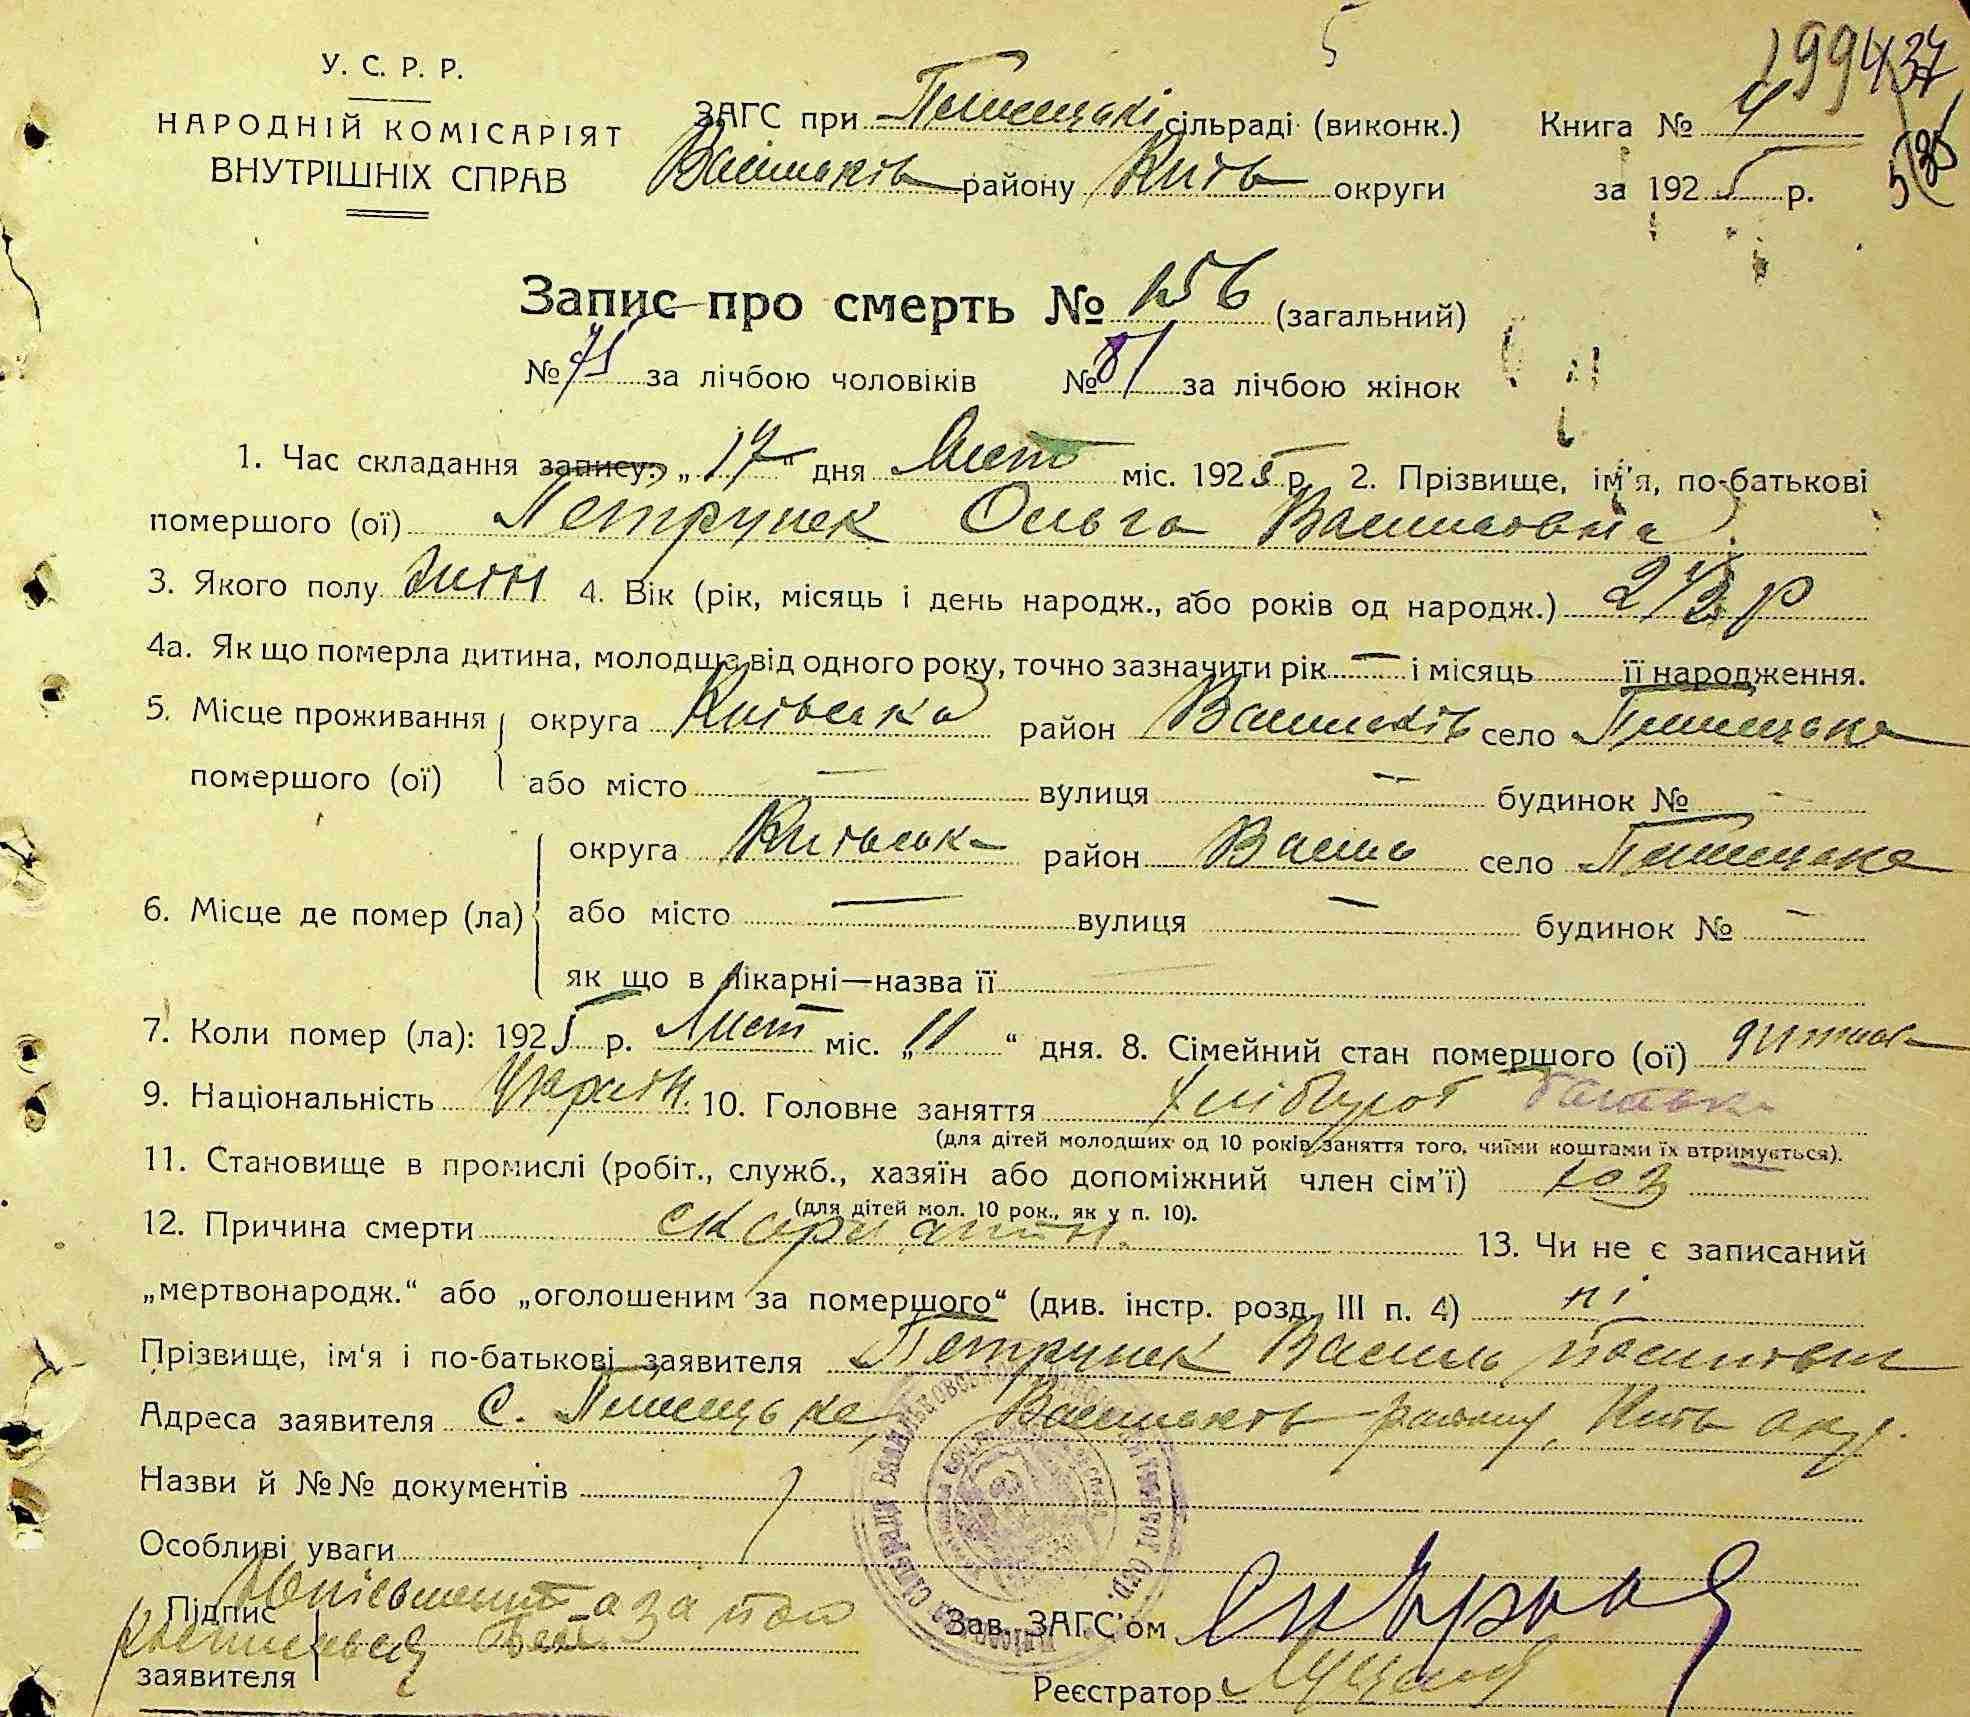 У. С. Р. Р.
НАРОДНІЙ КОМІСАРІЯТ
ВНУТРІШНІХ СПРАВ
5
ЗАГС при сільраді (виконк.)
Васильків району Київ округи
Книга № 4
за 1925 р.
Запис про смерть № 156 (загальний)
№ 75 за лічбою чоловіків № 81 за лічбою жінок
1. Час складання запису: „17“ дня Лист міс. 1925 р. 2. Прізвище, ім'я, по-батькові
помершого (ої) Петрунек Ольга Василовна
3. Якого полу жін 4. Вік (рік, місяць і день народж., або років од народж.) 2 1/2 р
4а. Як що померла дитина, молодша від одного року, точно зазначити рік — і місяць її народження.
5. Місце проживання помершого (ої) округа Київська район Васильків село
або місто — вулиця — будинок № —
6. Місце де помер (ла) округа Київська район Василь село
або місто — вулиця — будинок № —
як що в лікарні—назва її
7. Коли помер (ла): 1925 р. Лист міс. „11“ дня. 8. Сімейний стан помершого (ої) дитина
9. Національність Україн. 10. Головне заняття хлібороб батька
(для дітей молодших од 10 років заняття того, чиїми коштами їх втримується).
11. Становище в промислі (робіт., служб., хазяїн або допоміжний член сім'ї) хоз
(для дітей мол. 10 рок., як у п. 10).
12. Причина смерти скарлатин. 13. Чи не є записаний
„мертвонародж.“ або „оголошеним за помершого“ (див. інстр. розд. III п. 4) ні
Прізвище, ім'я і по-батькові заявителя Петрунек Василь
Адреса заявителя с. Васильків району, Київ окр.
Назви й №№ документів
Особливі уваги
Підпис заявителя
Зав. ЗАГС'ом
Реєстратор